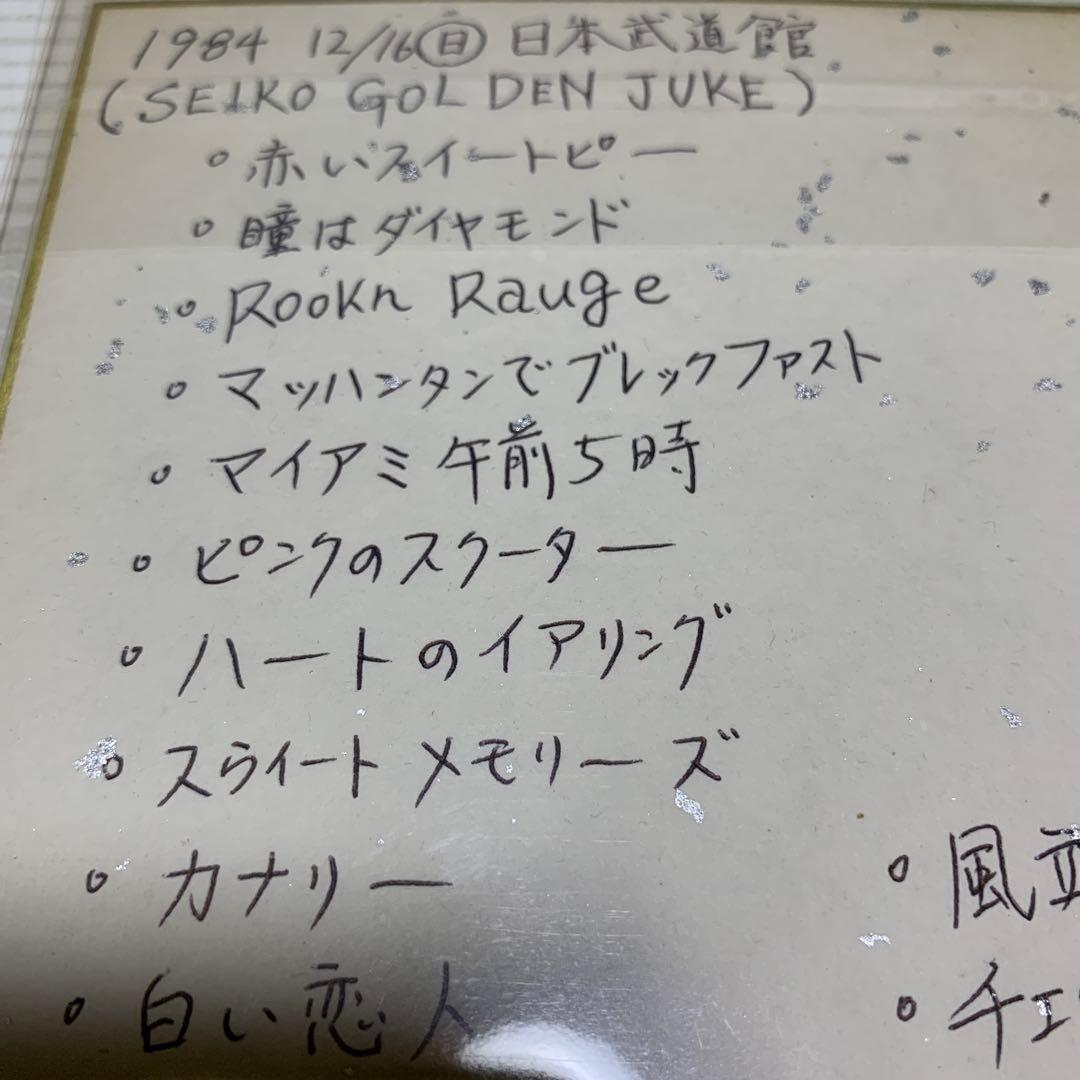 1984 12/16㊐ 日本武道館
(SEIKO GOLDEN JUKE)
。赤いスイートピー
。瞳はダイヤモンド
。Rookn Rauge
。マッハンタンでブレックファスト
。マイアミ午前5時
。ピンクのスクーター
。ハートのイアリング
。スウイート メモリーズ
。カナリー
。白い恋人
。風立
。チェ